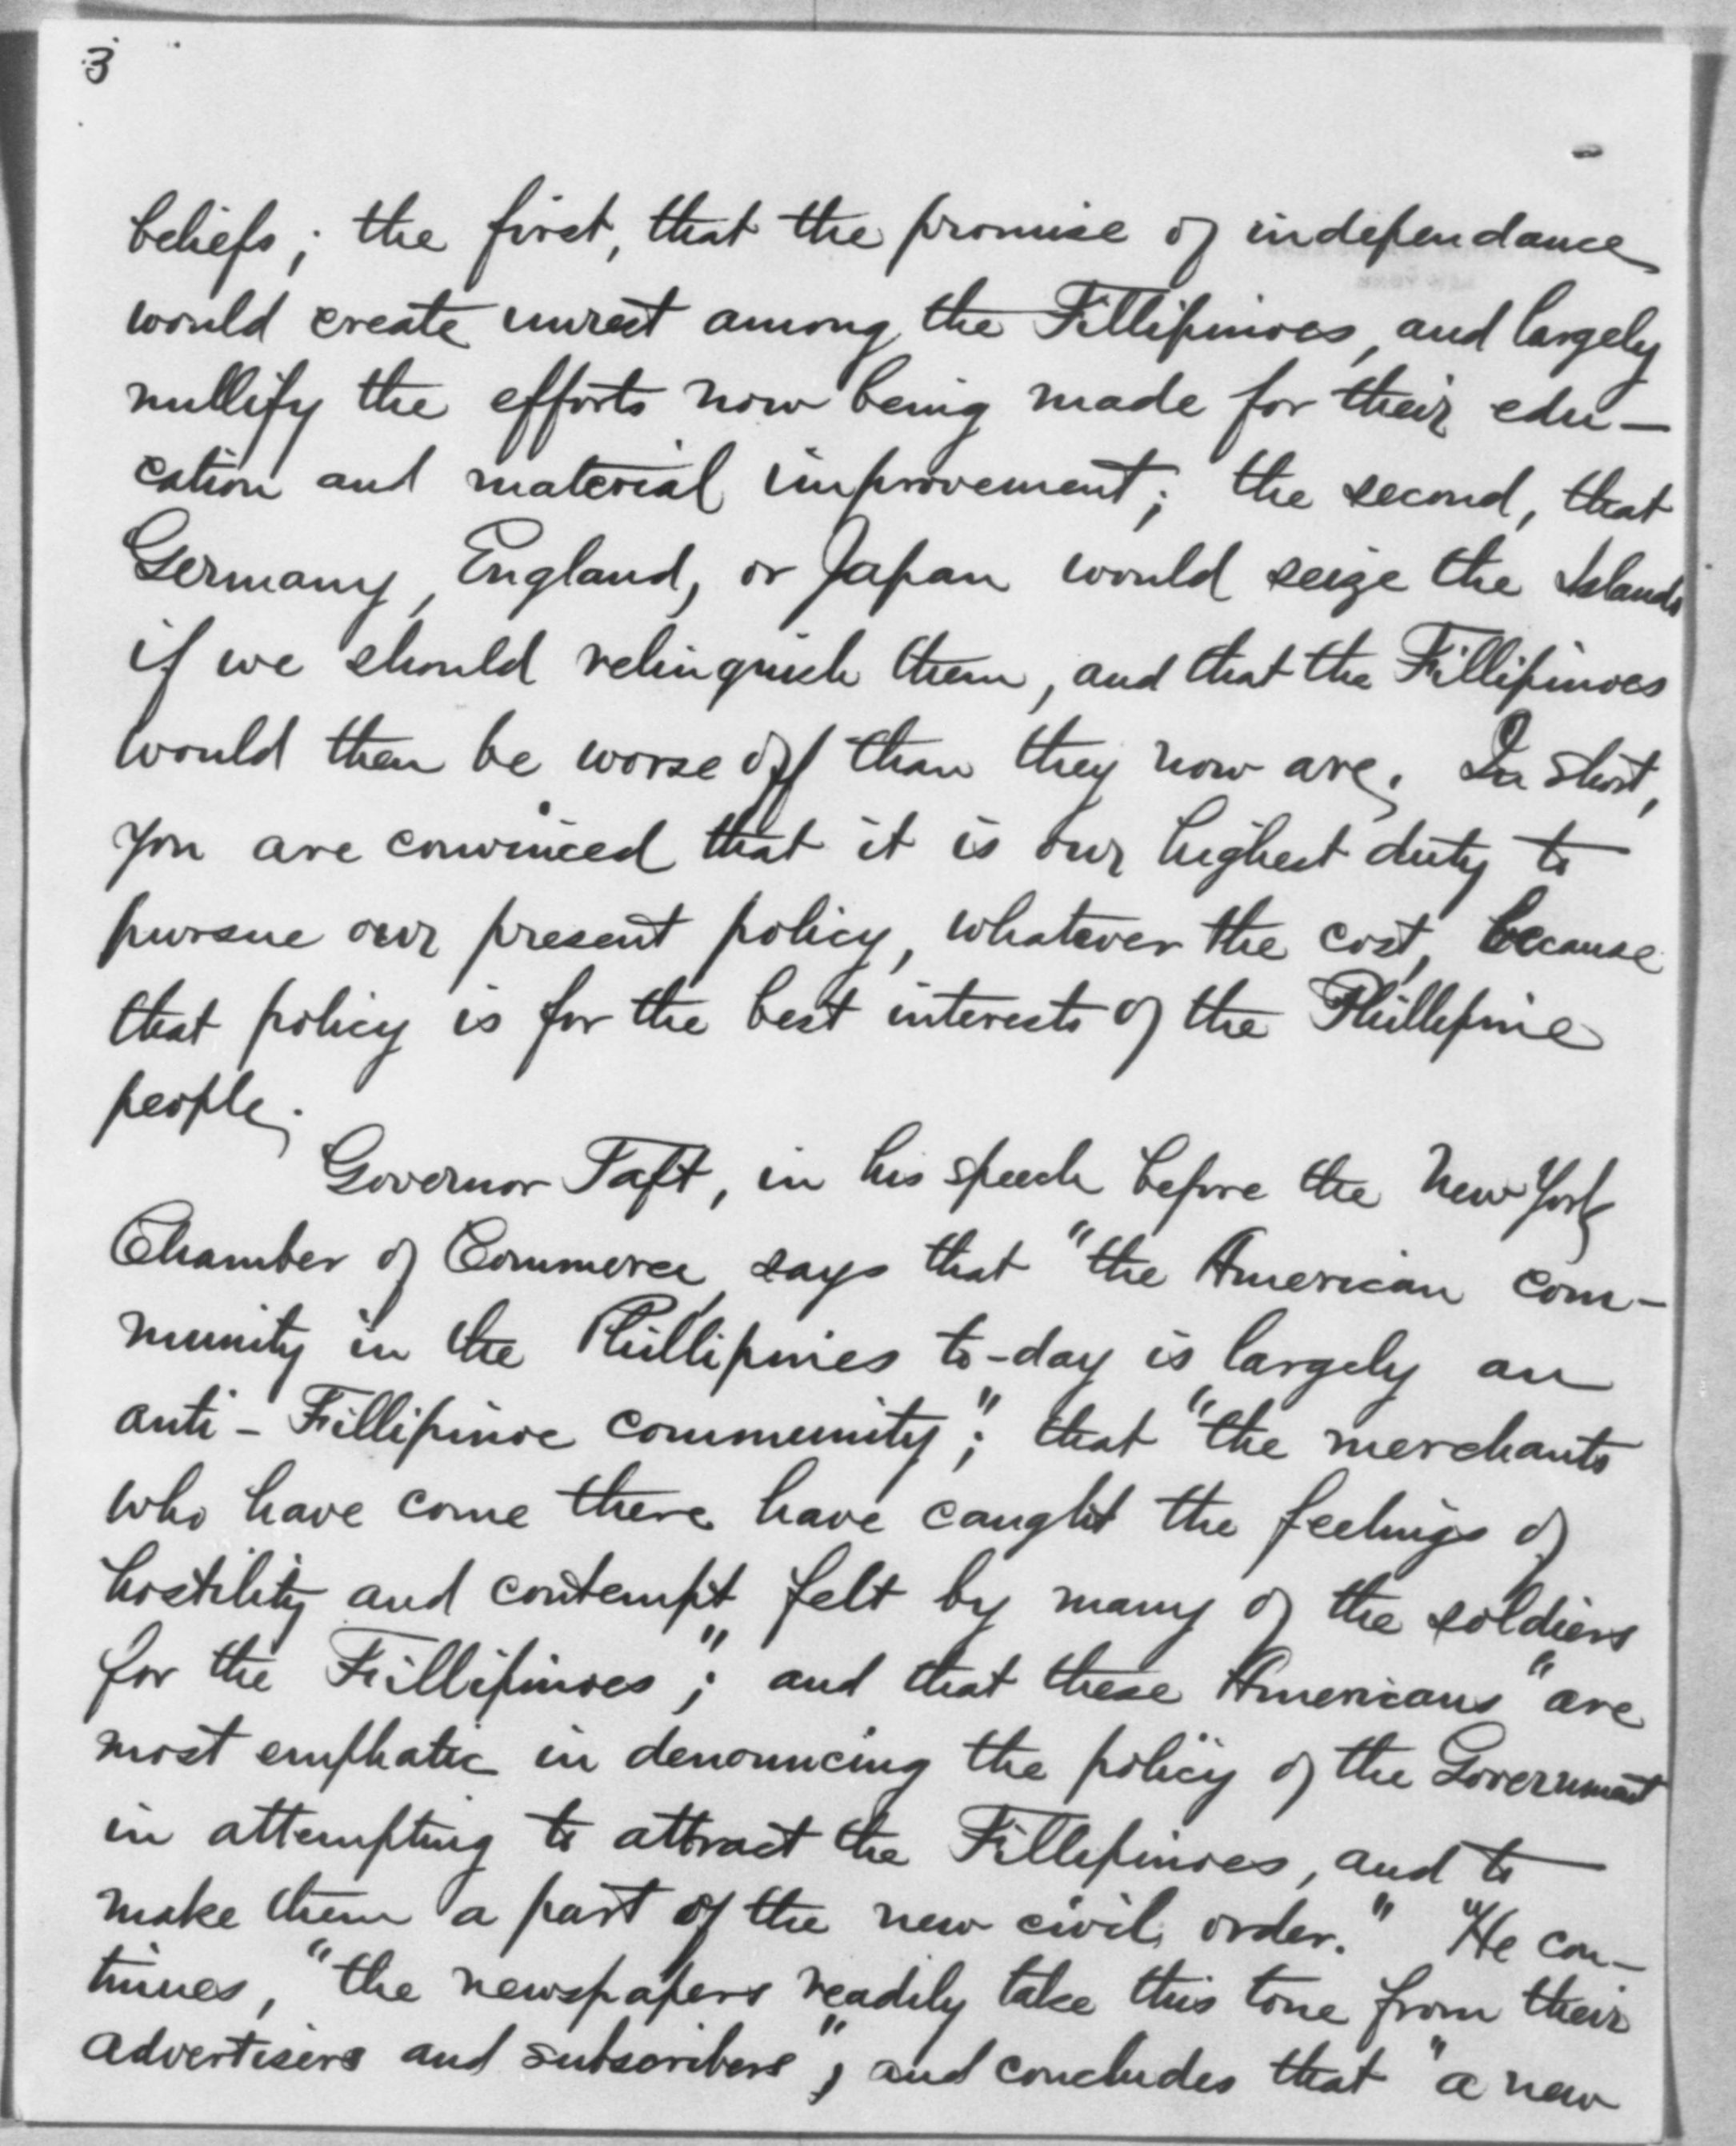 3
beliefs; the first, that the promise of independance
would create unrest among the Fillipinoes, and largely
nullify the efforts now being made for their edu-
cation and material improvement; the second, that
Germany, England, or Japan would seize the Islands
if we should relinquish them, and that the Fillipinoes
would then be worse off than they now are. In short,
you are convinced that it is our highest duty to
pursue our present policy, whatever the cost, because
that policy is for the best interests of the Phillepine
people.
Governor Taft, in his speech before the New York
Chamber of Commerce, says that "the American com-
munity in the Phillipines to-day is largely an
anti-Fillipinoe community"; that "the merchants
who have come there have caught the feelings of
hostility and contempt felt by many of the soldiers
for the Fillipinoes"; and that these Americans "are
most emphatic in denouncing the policy of the Government
in attempting to attract the Fillepinoes, and to
make them a part of the new civil order." He con-
tinues, "the newspapers readily take this tone from their
advertisers and subscribers", and concludes that "a new